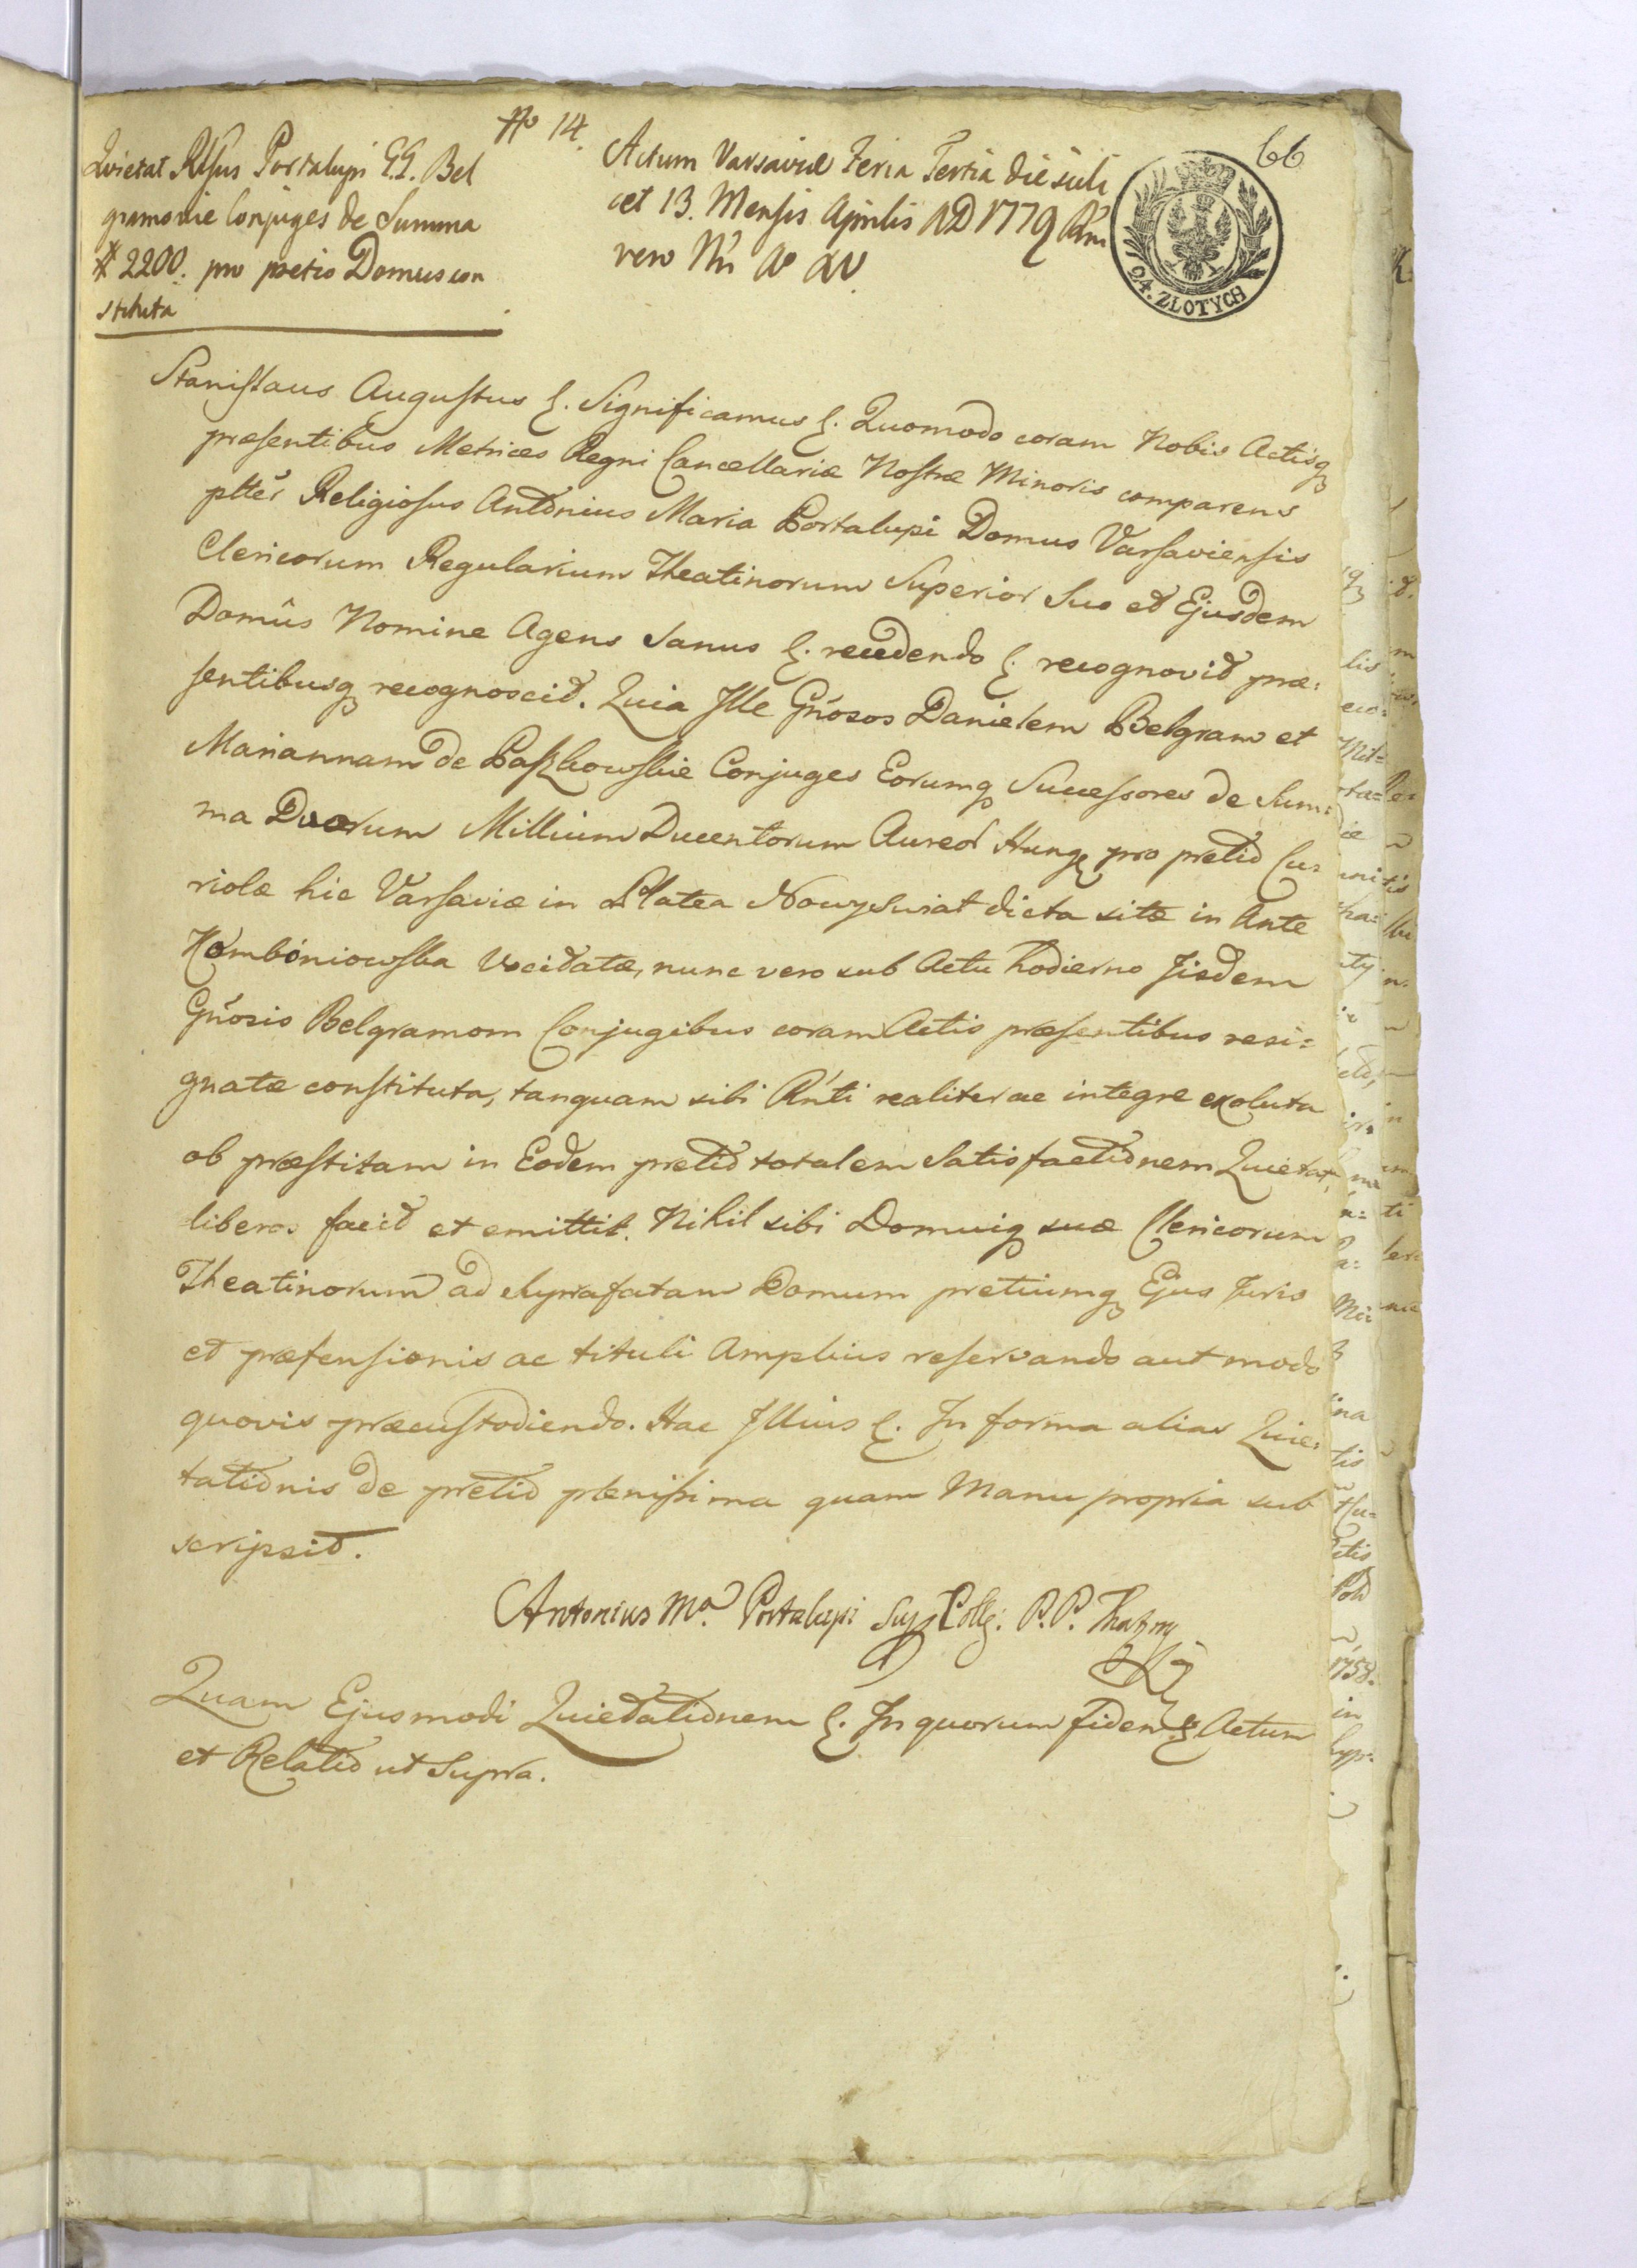 No 14.
66
Quietat Rlsus Portalupi G.G. Bel
gramowie Conjuges de Summa
# 2200. pro pretio Domus con
stituta
Actum Varsaviæ Feria Tertia die scili
cet 13. Mensis Aprilis AD 1779 Rni
vero Nri Ao XV.
24. ZLOTYCH
Stanislaus Augustus &. Significamus &. Quomodo coram Nobis Actisq
præsentibus Metrices Regni Cancellariæ Nostræ Minoris comparens
pltėr Religiosus Antonius Maria Portalupi Domus Varsaviensis
Clericorum Regularium Theatinorum Superior Suo et Ejusdem
Domûs Nomine Agens sanus &. recedendo &. recognovit præ:
sentibusq recognoscit. Quia Ille Gńosos Danielem Belgram et
Mariannam de Paszkowskie Conjuges Eorumq Successores de Sum:
ma Duorum Millium Ducentorum Aureor Hung pro pretio Cu:
riolæ hic Varsaviæ in Platea Nowyswiat dicta sitæ in Ante
Komboniowska vocitatæ, nunc vero sub Actu hodierno Iisdem
Gńosis Belgramom Conjugibus coram Actis præsentibus resi:
gnatæ constituta, tanquam sibi Rńti realiter ac integre exoluta
ob præstitam in Eodem pretio totalem Satisfactionem Quietat,
liberos facit et emittit. Nihil sibi Domuiq suæ Clericorum
Theatinorum ad Suprafatam Domum pretiumq Ejus Juris
et prætensionis ac tituli Amplius reservando aut modo
quovis præcustodiendo. Hac Illius &. In forma alias Quie:
tationis de pretio plenissima quam Manu propria sub
scripsit.
Antonius Ma. Portalupi Sup Collg. P.P. Theatin
Quam Ejusmodi Quietationem &. In quorum fidem & Actum
et Relatio ut Supra.